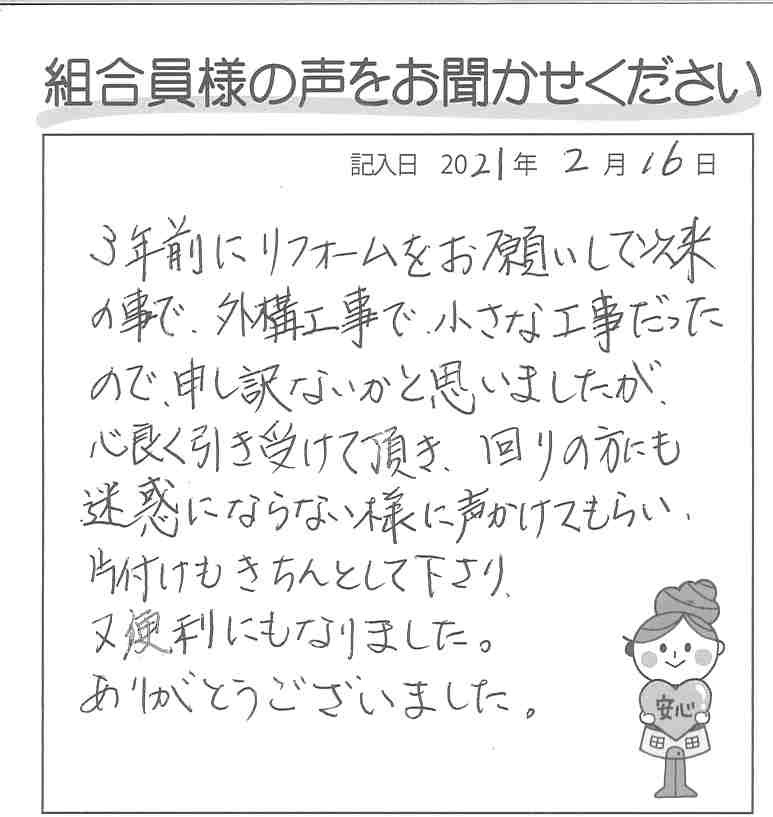 組合員様の声をお聞かせください
記入日 2021年 2月16日
3年前にリフォームをお願いして以来
の事で、外構工事で、小さな工事だった
ので、申し訳ないかと思いましたが、
心良く引き受けて頂き、回りの方にも
迷惑にならない様に声かけてもらい、
片付けもきちんとして下さり、
又便利にもなりました。
ありがとうございました。
安心